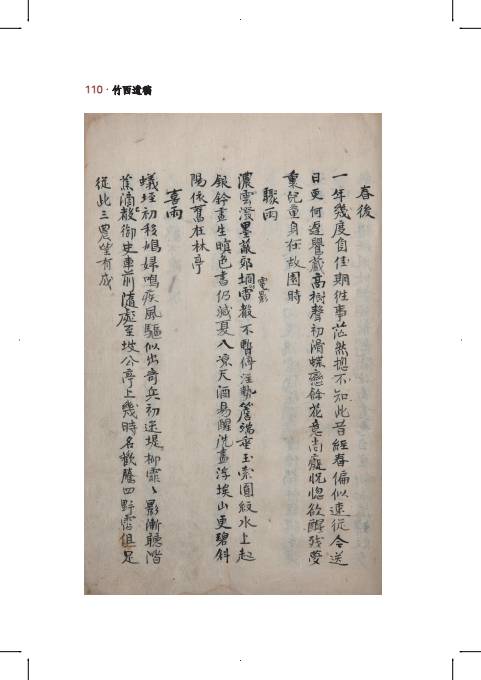 110 · 竹西遺稿
春後
一年幾度負佳期往事茫然摠不知此昔經春偏似速從今送
日更何遲鸎藏高樹聲初滑蝶戀餘花意尚癡怳惚欲醒殘夢
裏兒童身在故園時
驟雨
濃雲潑墨蔽郊坰電影雷聲不暫停注勢簷端垂玉索圓紋水上起
銀鈴晝生暝色書仍減夏入凉天酒易醒洗盡浮埃山更碧斜
陽依舊在林亭
喜雨
蟻垤初移鳩婦鳴疾風驅似出奇兵初迷堤柳霏〻影漸聽階
蕉滴〻聲御史車前隨處至坡公亭上幾時名歡騰四野霑俱足
從此三農坐有成